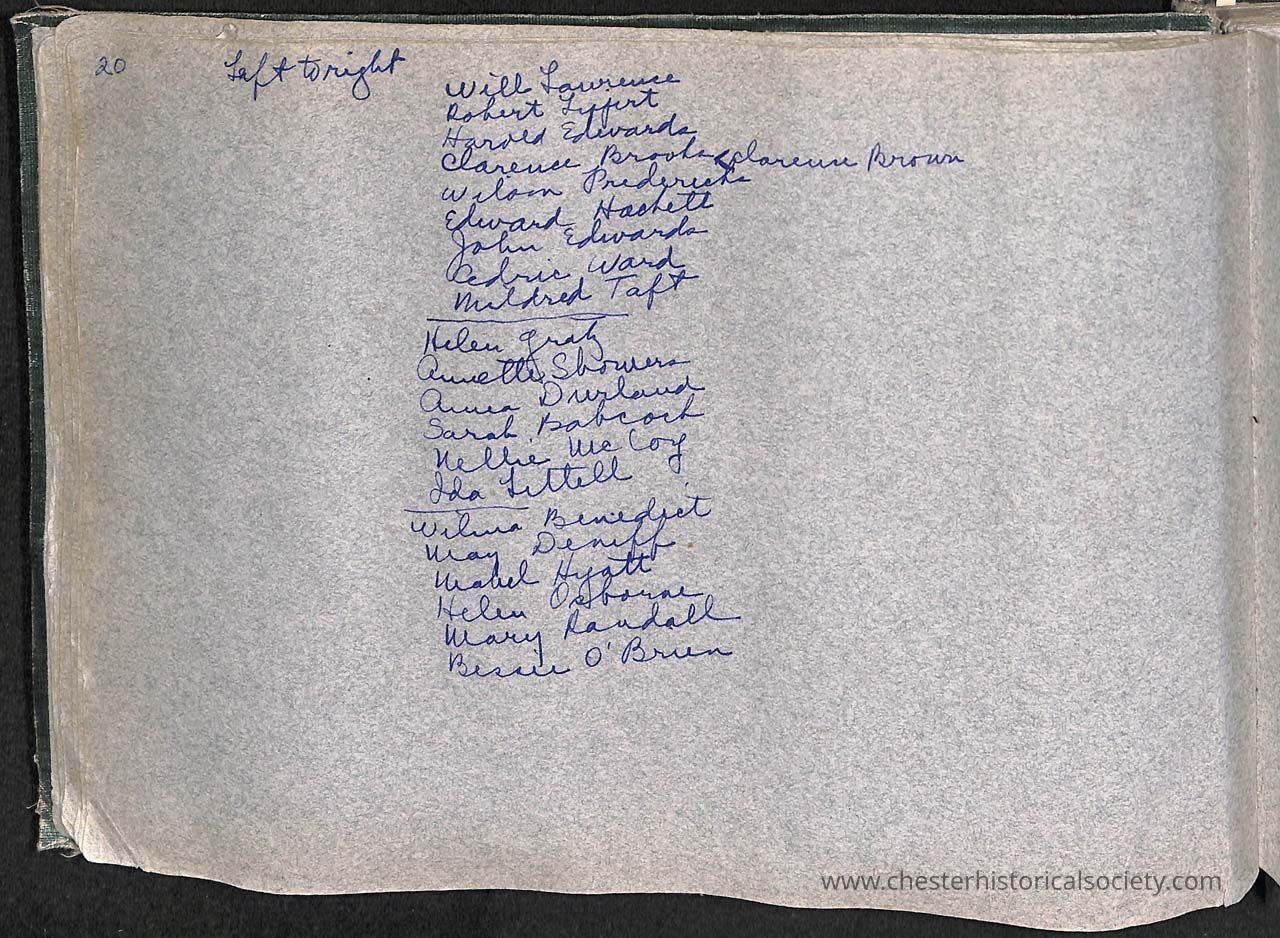 20
Left to right
Will Lawrence
Robert Lippert
Harold Edwards
Clarence Brooks < Clarence Brown
Wilson Fredericks
Edward Hackett
John Edwards
Cedric Ward
Mildred Taft
Helen Gratz
Annette Showers
Anna Durland
Sarah Babcock
Nellie McCoy
Ida Littell
Wilma Benedict
May Deniff
Mabel Hyatt
Helen Osborne
Mary Randall
Bessie O'Brien
www.chesterhistoricalsociety.com